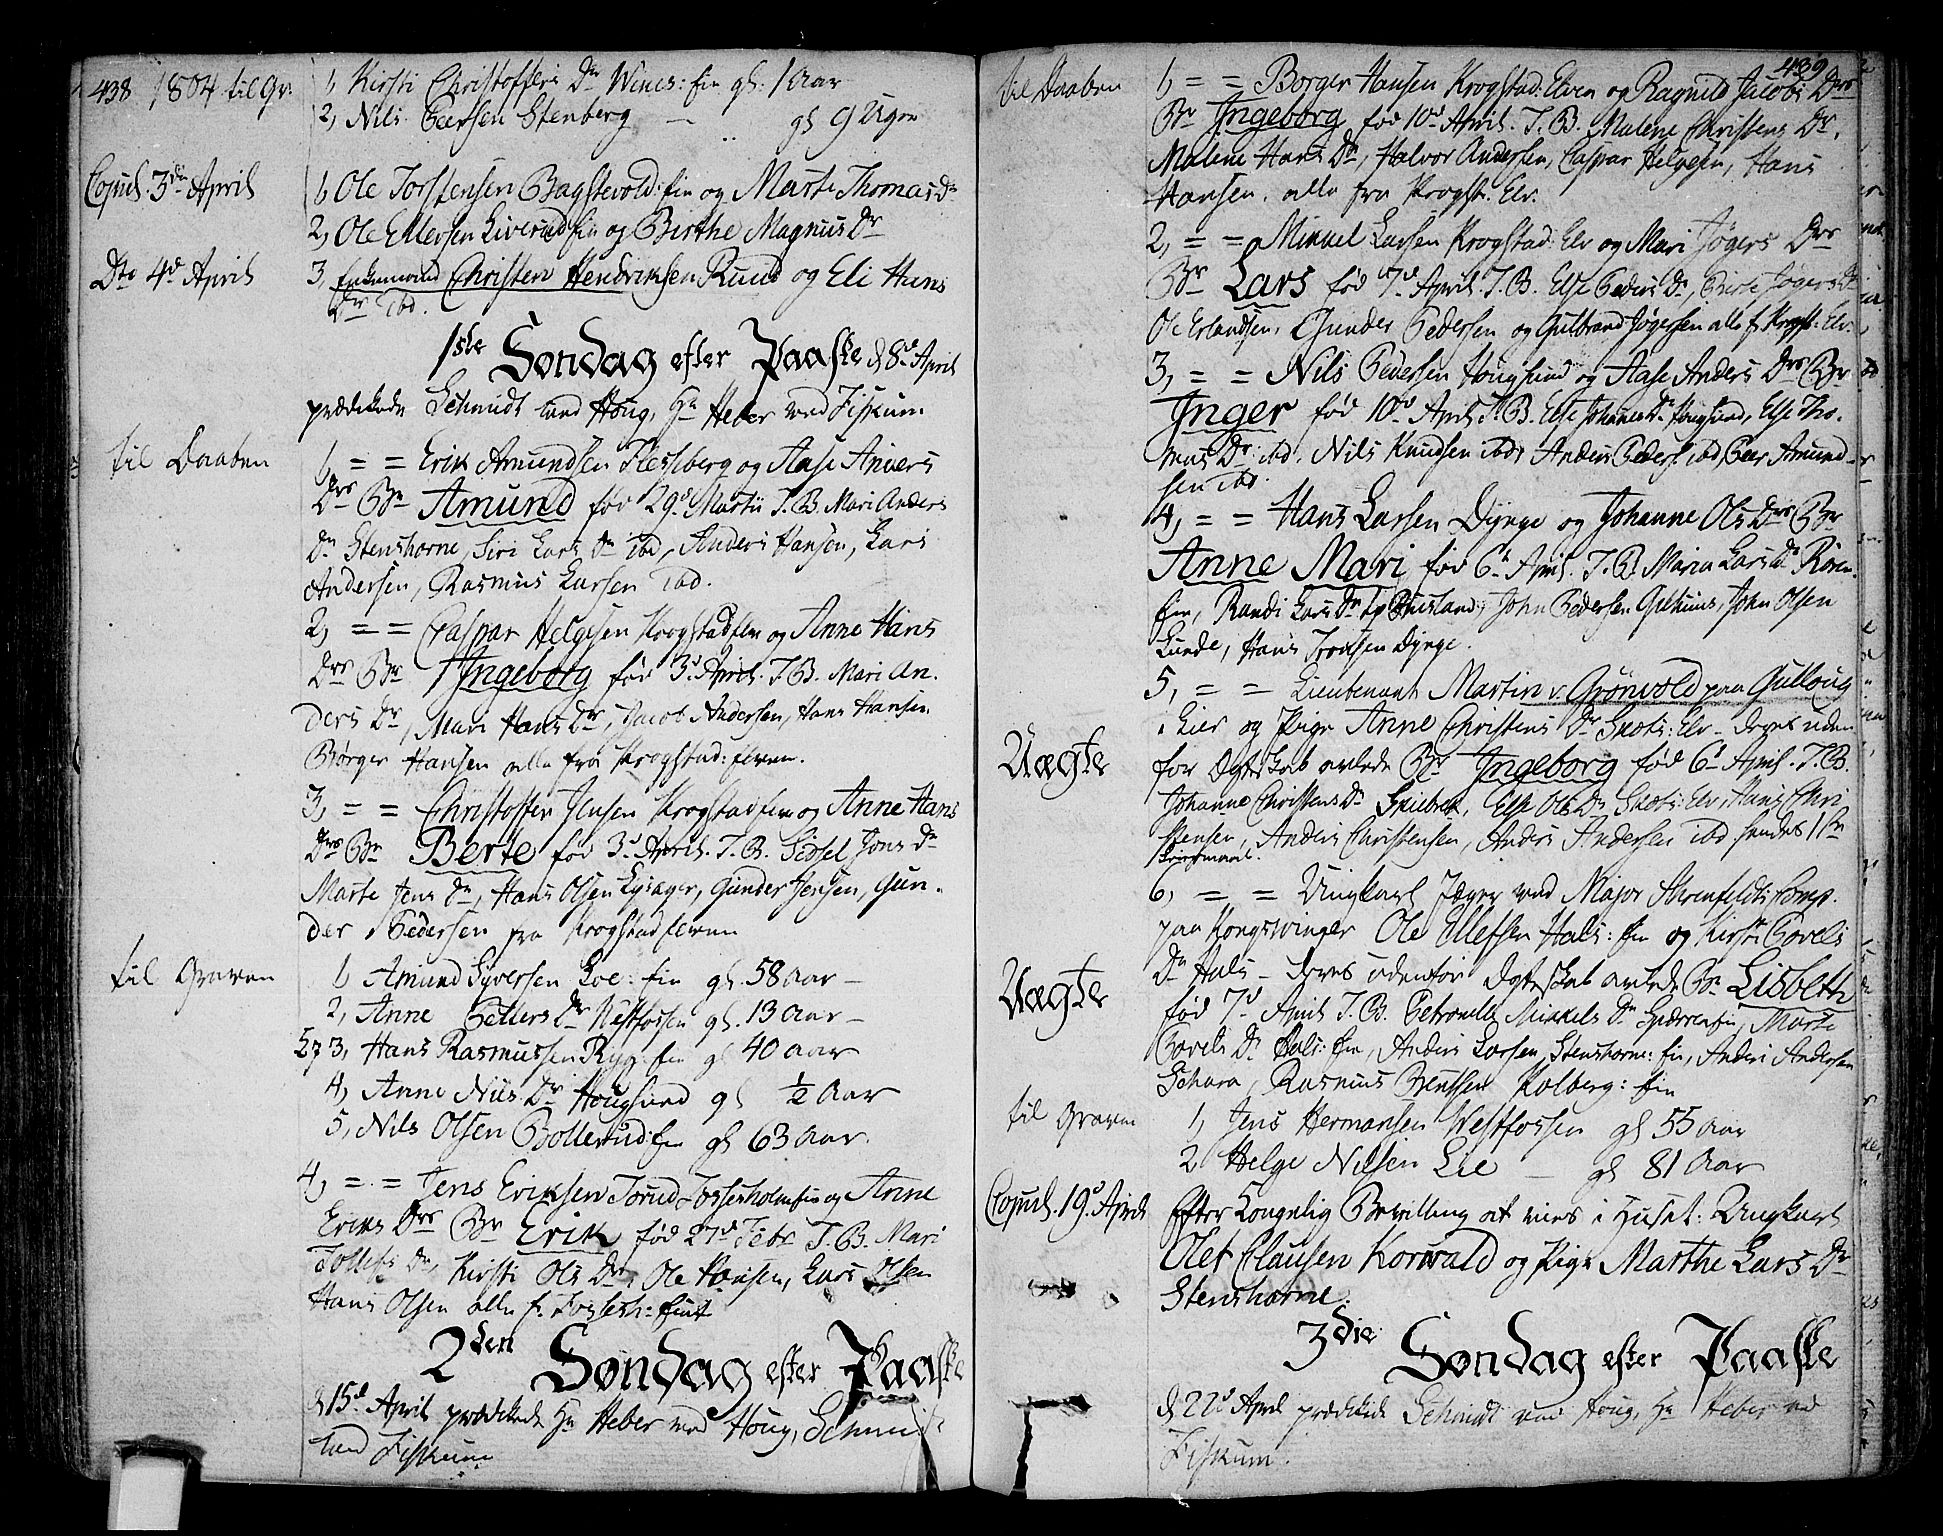 438 1804 til Gr:
1, Kirsti Christoffers Dr Wines: fin gl: 1 Aar
2, Nils Peersen Stenberg — gl 9 Ugor
Copul. 3de April
1, Ole Torstensen Bagstevold: fin og Marte Thomas Dr
2, Ole Ellevsen Liverud fin og Birthe Magnus Dr
Dto 4de April
3, Enkemand Christen Hendriksen Ruud og Eli Hans
Dr ibd.
1ste Søndag efter Paaske d 8d April
prædikede Schmidt ved Houg, Hr Heber ved Fiskum
til Daaben
1, = = Erik Amundsen Flesseberg og Aase Anders
Drs Br Amund fød 29d Martii T. B. Mari Anders
Dr Stenshorne, Siri Lars Dr ibd, Anders Hansen, Lars
Andersen, Rasmus Larsen ibd.
2, = = Caspar Helgesen Krogstadelv og Anne Hans
Drs Br Ingeborg fød 3d April. T. B. Mari An-
ders Dr, Mari Hans Dr, Jacob Andersen, Hans Hansen
Børger Hansen alle fra Krogstad: elven.
3, = = Christoffer Jensen Krogstadelv og Anne Hans
Drs Br Berte fød 3d April. T. B. Sidsel Jons Dr
Marte Jens Dr, Hans Olsen Lysager, Gunder Jensen, Gun-
der Pedersen fra Krogstadelven
til Graven
1, Amund Syversen Loe: fin gl. 58 Aar —
2, Anne Petters Dr Westfossen gl. 13 Aar —
27 3, Hans Rasmussen Ryg: fin gl 40 Aar
4, Anne Niels Dr Hougsund gl ½ Aar
5, Nils Olsen Bollerud: fin gl 63 Aar.
4, = = Jens Eriksen Torud Fossesholm fin og Anne
Eriks Drs Br Erik fød 27d Febr T. B. Mari
Tollefs Dr, Kirsti Ols Dr, Ole Hansen, Lars Olsen
Hans Olsen alle f. Fossesh: fint
2den Søndag efter Paaske
d 15d April prædikede Hr Heber ved Houg, Schmidt
ved Fiskum
439
til Daaben
1, = = Borger Hansen Krogstad: Elven og Ragnild Jacobs Drs
Br Ingeborg fød 10d April. T. B. Malene Christens Dr,
Malene Hans Dr, Halvor Andersen, Caspar Helgesen, Hans
Hansen, alle fra Krogst. Elv.
2, = = Mikkel Larsen Krogstad: Elv og Mari Jøgers Drs
Br Lars fød 7d April. T. B. Else Peders Dr, Birte Jøgers Dr
Ole Erlandsen, Gunder Pedersen og Gulbrand Jøgersen alle f. Krogst: Elv.
3, = = Nils Pedersen Hougsund og Aase Anders Drs Br
Inger fød 10d April T. B. Else Johannes Dr Hougsund, Else Tho-
mas Dr ibd. Nils Knudsen ibd, Anders Peders. ibd, Peer Amund-
sen ibd.
4, = = Hans Larsen Dynge og Johanne Ols Drs Br
Anne Mari fød 6d April. T. B. Maria Lars Dr
fin, Randi Lars Dr John Pedersen John Olsen
Lunde, Hans Dynge.
5, = = Lieutenant Martin v. Grønvold paa Gulloug
i Lier og Pige Anne Christens Dr Skots: Elv — deres uden
Uægte
for Ægteskab avlede Br Ingeborg fød 6d April. T. B.
Johanne Christens Dr Skiebek, Else Ols Dr Skots: Elv, Hans Chri-
stensen, Anders Christensen, Anders Andersen ibd hendes 1ste
6, = = Ungkarl Jæger ved Major Ahrenfeldts Comp.
paa Kongswinger Ole Ellefsen Hals: fin og Kirsti Povels
Uægte
Dr Hals — deres udenfor Ægteskab avlede Br Lisbeth
fød 7d April T. B. Petronelle Mikkels Dr Marte
Povels Dr Hals: fin, Anders Larsen, Stenshorne: fin, Anders Andersen
Schara, Rasmus Berntsen Kolberg: fin
til Graven
1, Jens Hermansen Westfossen gl 55 Aar
2, Helge Nilsen Lie — gl 81 Aar
Copul. 19d April
Efter Kongelig Bevilling at vies i Huset: Ungkarl
Olef Clausen Korwald og Pige Marthe Lars Dr
Stenshorne.
3die Søndag efter Paaske
d 22d April prædikede Schmidt ved Houg, Hr Heber ved
Fiskum.